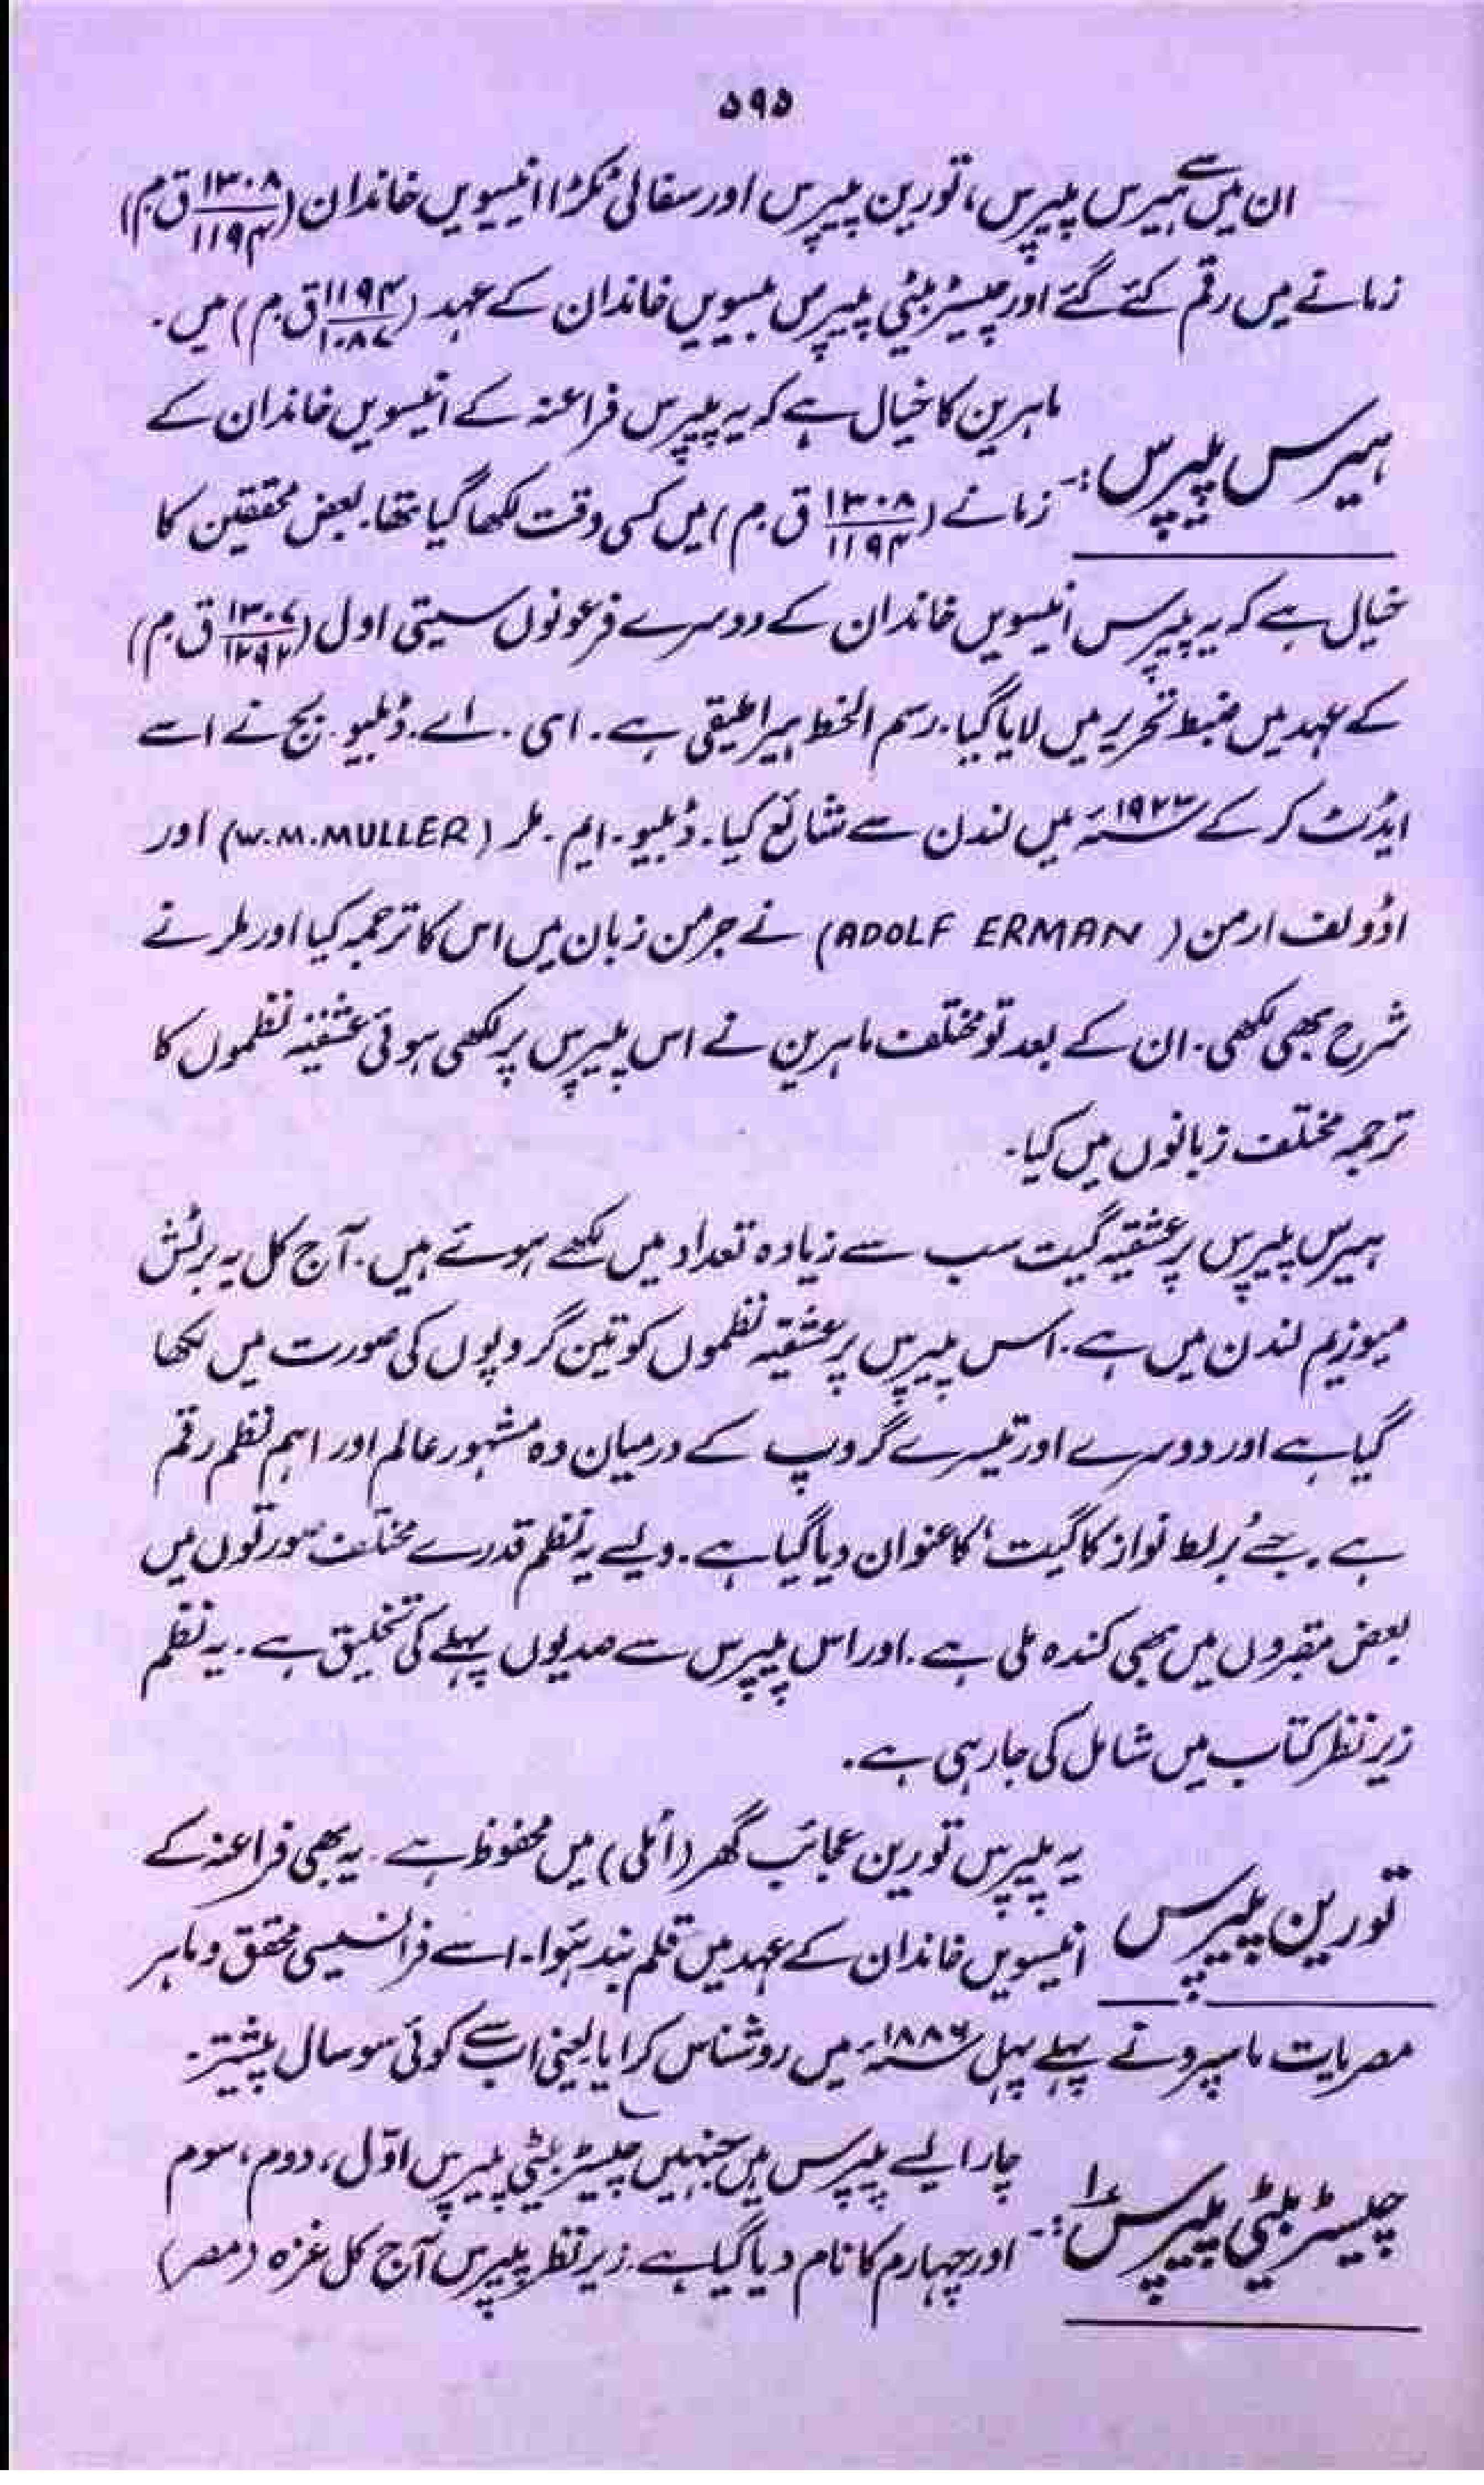 ۵۹۵
ان میں سے ہیرس پیپرس، تورین پیپرس اور سفالی ٹکڑا انیسویں خاندان (۱۳۰۸/۱۱۹۴ ق م)
زمانے میں رقم کئے گئے اور چیسٹر بیٹی پیپرس بیسویں خاندان کے عہد (۱۱۹۴/۱۰۸۷ ق م) میں۔
ہیرس پیپرس :۔
ماہرین کا خیال ہے کہ یہ پیپرس فراعنہ کے انیسویں خاندان کے
زمانے (۱۳۰۸/۱۱۹۴ ق م) میں کسی وقت لکھا گیا تھا۔ بعض محققین کا
خیال ہے کہ یہ پیپرس انیسویں خاندان کے دوسرے فرعونوں سیتی اول (۱۳۰۷/۱۲۹۲ ق م)
کے عہد میں ضبط تحریر میں لایا گیا۔ رسم الخط ہیراطیقی ہے۔ ای۔ اے۔ ڈبلیو۔ بج نے اسے
ایڈٹ کر کے ۱۹۲۳ء میں لندن سے شائع کیا۔ ڈبلیو۔ ایم۔ ملر (W.M.MULLER) اور
اڈولف ارمن (ADOLF ERMAN) نے جرمن زبان میں اس کا ترجمہ کیا اور ملر نے
شرح بھی لکھی۔ ان کے بعد تو مختلف ماہرین نے اس پیپرس پر لکھی ہوئی عشقیہ نظموں کا
ترجمہ مختلف زبانوں میں کیا۔
ہیرس پیپرس پر عشقیہ گیت سب سے زیادہ تعداد میں لکھے ہوئے ہیں۔ آج کل یہ برٹش
میوزیم لندن میں ہے۔ اس پیپرس پر عشقیہ نظموں کو تین گروپوں کی صورت میں لکھا
گیا ہے اور دوسرے اور تیسرے گروپ کے درمیان وہ مشہور عالم اور اہم نظم رقم
ہے۔ جسے ’بربط نواز کا گیت‘ کا عنوان دیا گیا ہے۔ ویسے یہ نظم قدرے مختلف صورتوں میں
بعض مقبروں میں بھی کندہ ملی ہے۔ اور اس پیپرس سے صدیوں پہلے کی تخلیق ہے۔ یہ نظم
زیر نظر کتاب میں شامل کی جا رہی ہے۔
تورین پیپرس
یہ پیپرس تورین عجائب گھر (اٹلی) میں محفوظ ہے۔ یہ بھی فراعنہ کے
انیسویں خاندان کے عہد میں قلم بند ہوا۔ اسے فرانسیسی محقق و ماہر
مصریات ماسپرو نے پہلے پہل ۱۸۸۶ء میں روشناس کرایا۔ یعنی اب سے کوئی سو سال پیشتر۔
چیسٹر بیٹی پیپرس ۱ :۔
چار ایسے پیپرس ہیں جنہیں چیسٹر بیٹی پیپرس اوّل، دوم، سوم
اور چہارم کا نام دیا گیا ہے۔ زیر نظر پیپرس آج کل غزہ (مصر)